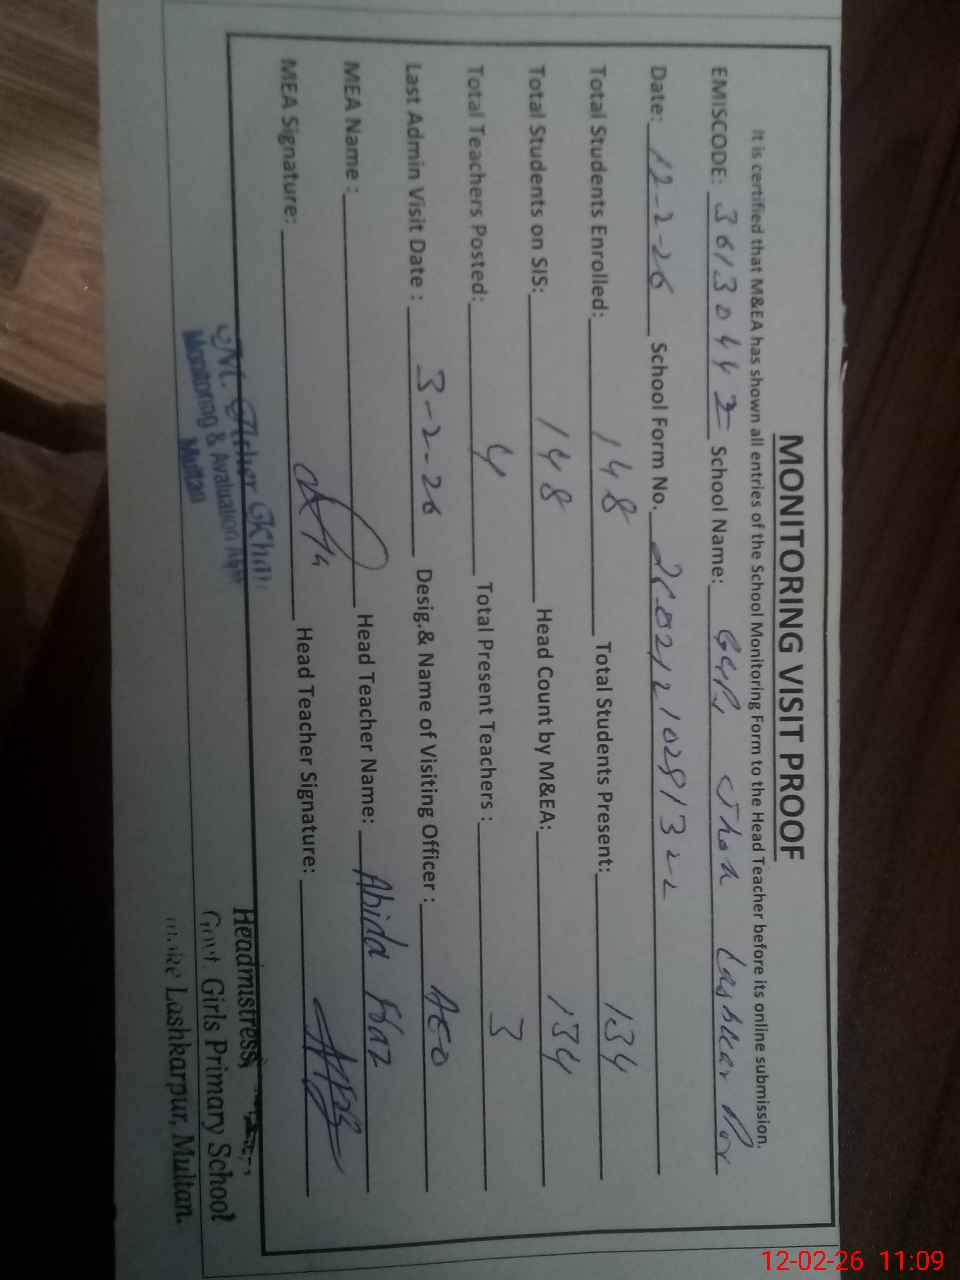 MONITORING VISIT PROOF
It is certified that M&EA has shown all entries of the School Monitoring Form to the Head Teacher before its online submission.
EMISCODE: 36130442 School Name: GGPS Jhoa Lashkar Por
Date: 12-2-26 School Form No.
Total Students Enrolled: 148 Total Students Present: 134
Total Students on SIS: 148 Head Count by M&EA: 134
Total Teachers Posted: 4 Total Present Teachers : 3
Last Admin Visit Date : 3-2-26 Desig.& Name of Visiting Officer : AEO
MEA Name : Head Teacher Name: Abida
MEA Signature: Head Teacher Signature:
Monitoring & Avaluation
Multan
Headmistress
Govt. Girls Primary School
Lashkarpur, Multan.
12-02-26 11:09